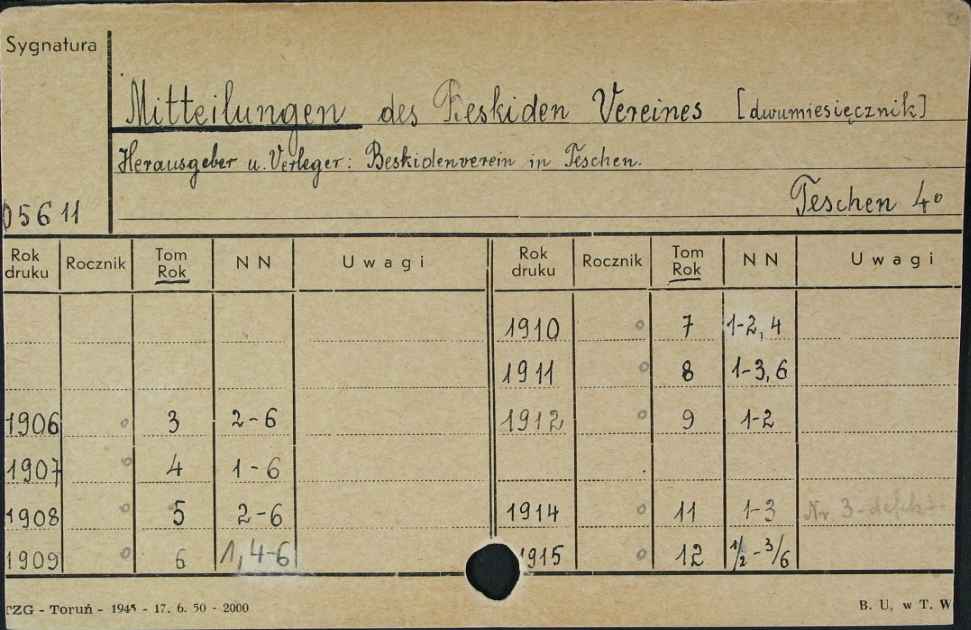 Sygnatura
Mitteilungen des Beskiden Vereines [dwumiesięcznik]
Herausgeber u. Verleger: Beskidenverein in Teschen.
Teschen 4°
05611
Rok druku Rocznik Tom Rok NN Uwagi Rok druku Rocznik Tom Rok NN Uwagi
1910 7 1-2, 4
1911 8 1-3, 6
1906 3 2-6 1912 9 1-2
1907 4 1-6
1908 5 2-6 1914 11 1-3 Nr 3-defekt
1909 6 1, 4-6 1915 12 1/2-3/6
TZG - Toruń - 1945 - 17. 6. 50 - 2000 B. U. w T. W